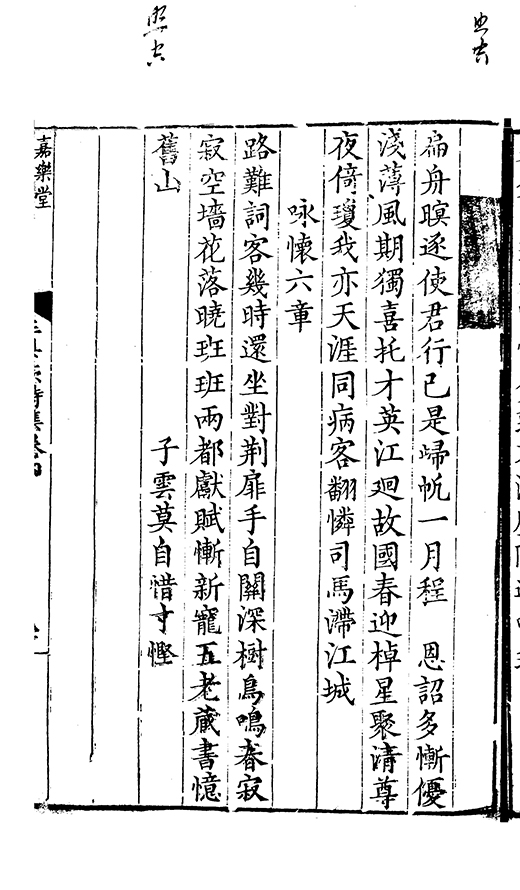 扁舟暝逐使君行已是歸帆一月程　恩詔多慚優
淺薄風期獨喜托才英江廻故國春迎棹星聚清尊
夜倚瓊我亦天涯同病客翻憐司馬滯江城
咏懷六章
路難詞客幾時還坐對荆扉手自關深樹鳥鳴春寂
寂空墻花落曉班班兩都獻賦慚新寵五老藏書憶
舊山　子雲莫自惜寸慳
嘉樂堂